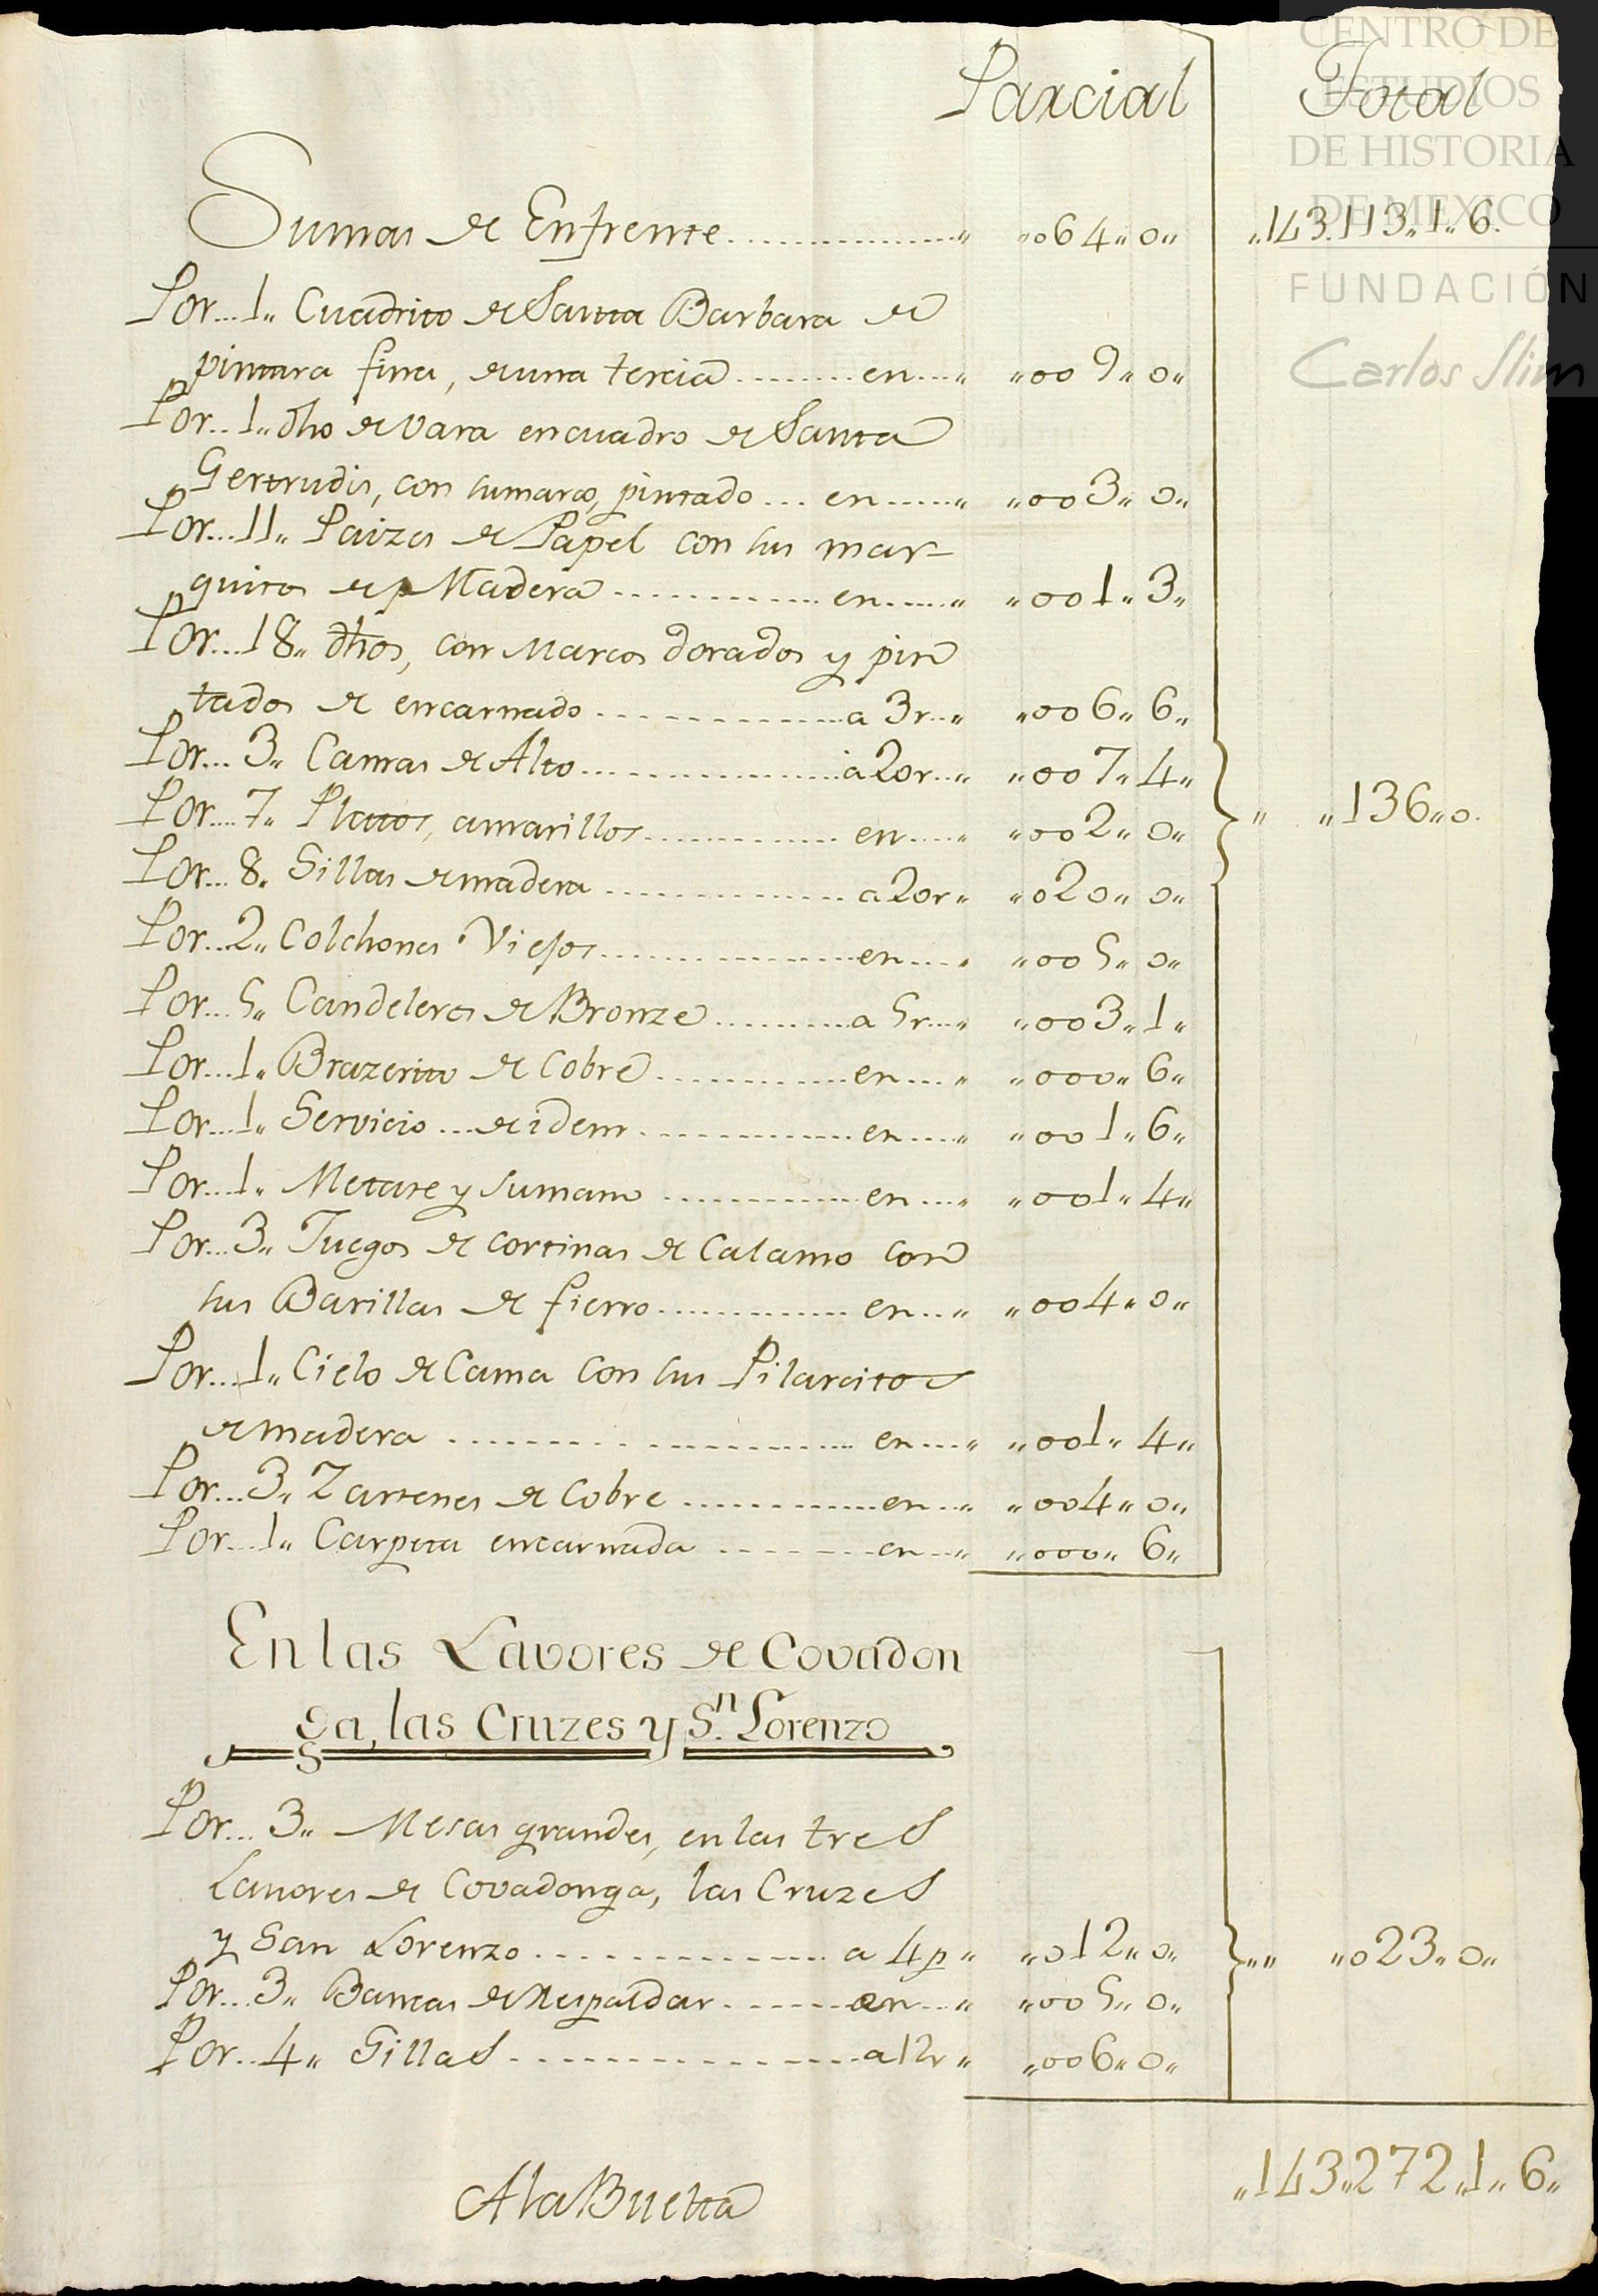 Parcial Total
Sumas de Enfrente................" "064"0" "143.113"1"6.
Por...1" Cuadrito de Santa Barbara de
pintura fina, de una tercia.........en...." "009"0"
Por...1" dho de Vara en cuadro de Santa
Gertrudis, con su marco, pintado....en......" "003"0"
Por...11" Paizes de Papel con sus mar-
quitos de Madera..............en......" "001"3"
Por...18" dhos, con Marcos dorados y pin
tados de encarnado..............a 3r..." "006"6"
Por...3" Camas de Alto................a 20r..." "007"4"
Por....7" Platos, amarillos.............en....." "002"0" " "136"0.
Por...8" Sillas de madera..............a 20r" "020"0"
Por...2" Colchones Viejos................en...." "005"0"
Por...5" Candeleros de Bronze.........a 5r...." "003"1"
Por...1" Brazerito de Cobre............en...." "000"6"
Por...1" Servicio....de idem.............en....." "001"6"
Por...1" Metate y su mano............en...." "001"4"
Por...3" Juegos de cortinas de Calamo con
sus Barillas de fierro............en..." "004"0"
Por...1" Cielo de Cama con sus Pilarcitos
de madera.....................en....." "001"4"
Por...3" Zartenes de Cobre.............en..." "004"0"
Por...1" Carpeta encarnada..........en...." "000"6"
En las Lavores de Covadon
ga, las Cruzes y Sn. Lorenzo
Por...3" Mesas grandes, en las tres
Lavores de Covadonga, las Cruzes
y San Lorenzo................a 4p" "012"0" "" "023"0"
Por...3" Bancas de Respaldar.......en..." "005"0"
Por..4" Sillas..................a 12r" "006"0"
"143"272"1"6"
A la Buelta
CENTRO DE
ESTUDIOS
DE HISTORIA
DE MEXICO
FUNDACIÓN
Carlos Slim